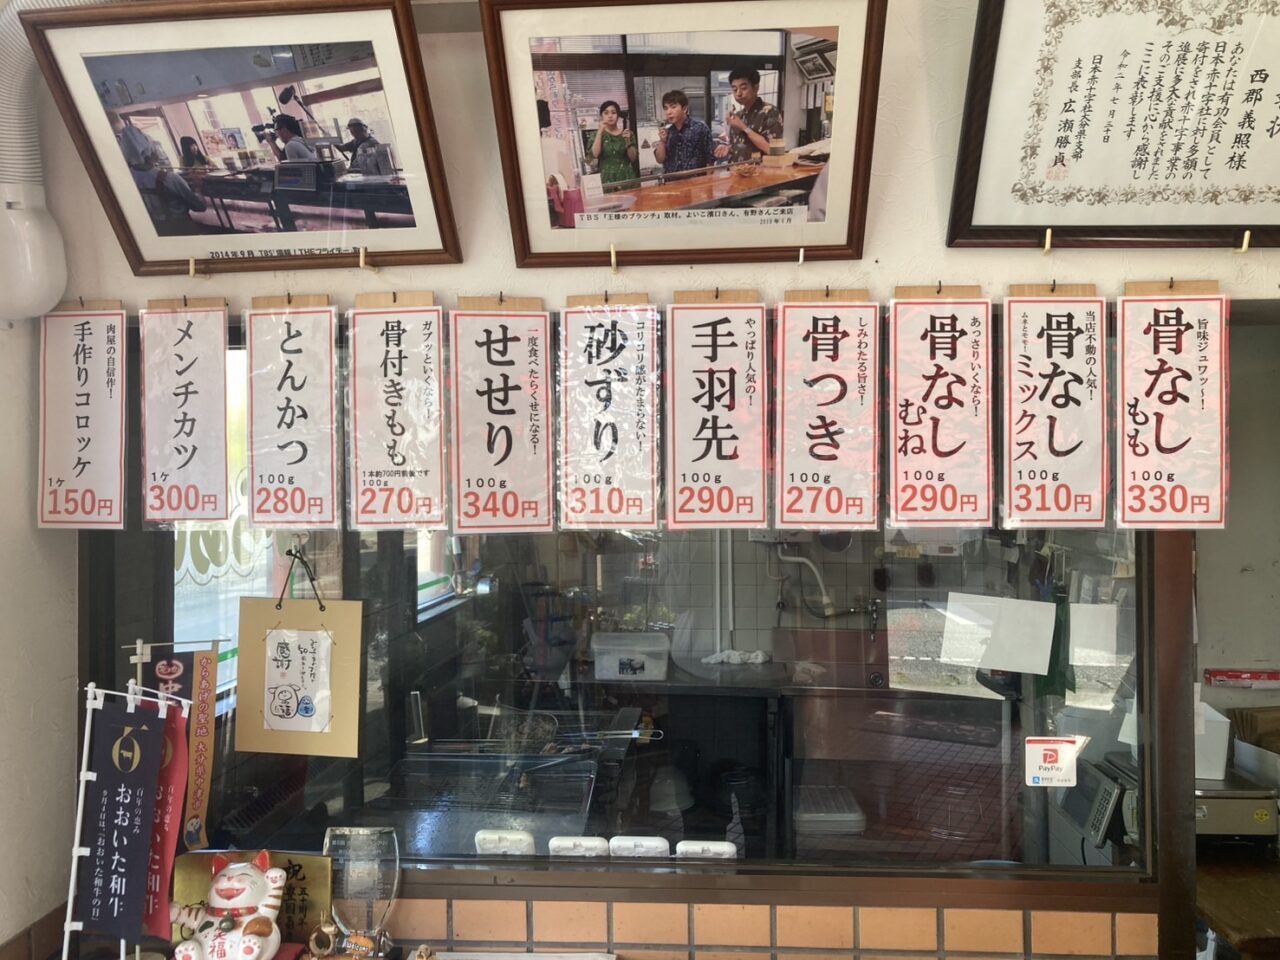 2014年9月 TBS
TBS「王様のブランチ」取材。よいこ濱口さん、有野さんご来店
西郡義照様
あなたは有功会員として
日本赤十字社に対し多額の
寄付をされ赤十字事業の
進展に多大な貢献をされました
そのご支援に心から感謝し
ここに表彰します
令和二年七月三十日
日本赤十字社大分県支部
支部長 広瀬勝貞
旨味ジュワッ〜!
骨なし
もも
100g
330円
当店不動の人気!
骨なし
ムネとモモ!
ミックス
100g
310円
あっさりいくなら!
骨なし
むね
100g
290円
しみわたる旨さ!
骨つき
100g
270円
やっぱり人気の!
手羽先
100g
290円
コリコリ感がたまらない!
砂ずり
100g
310円
一度食べたらくせになる!
せせり
100g
340円
ガブッといくなら!
骨付きもも
1本約700円前後です
100g
270円
とんかつ
100g
280円
メンチカツ
1ケ
300円
肉屋の自信作!
手作りコロッケ
1ケ
150円
感謝
からあげの聖地 大分県中津市
百年の恵み
おおいた和牛
9月4日は、「おおいた和牛の日」
百年の恵み
おおいた和牛
祝
笑福
Welcome
PayPay